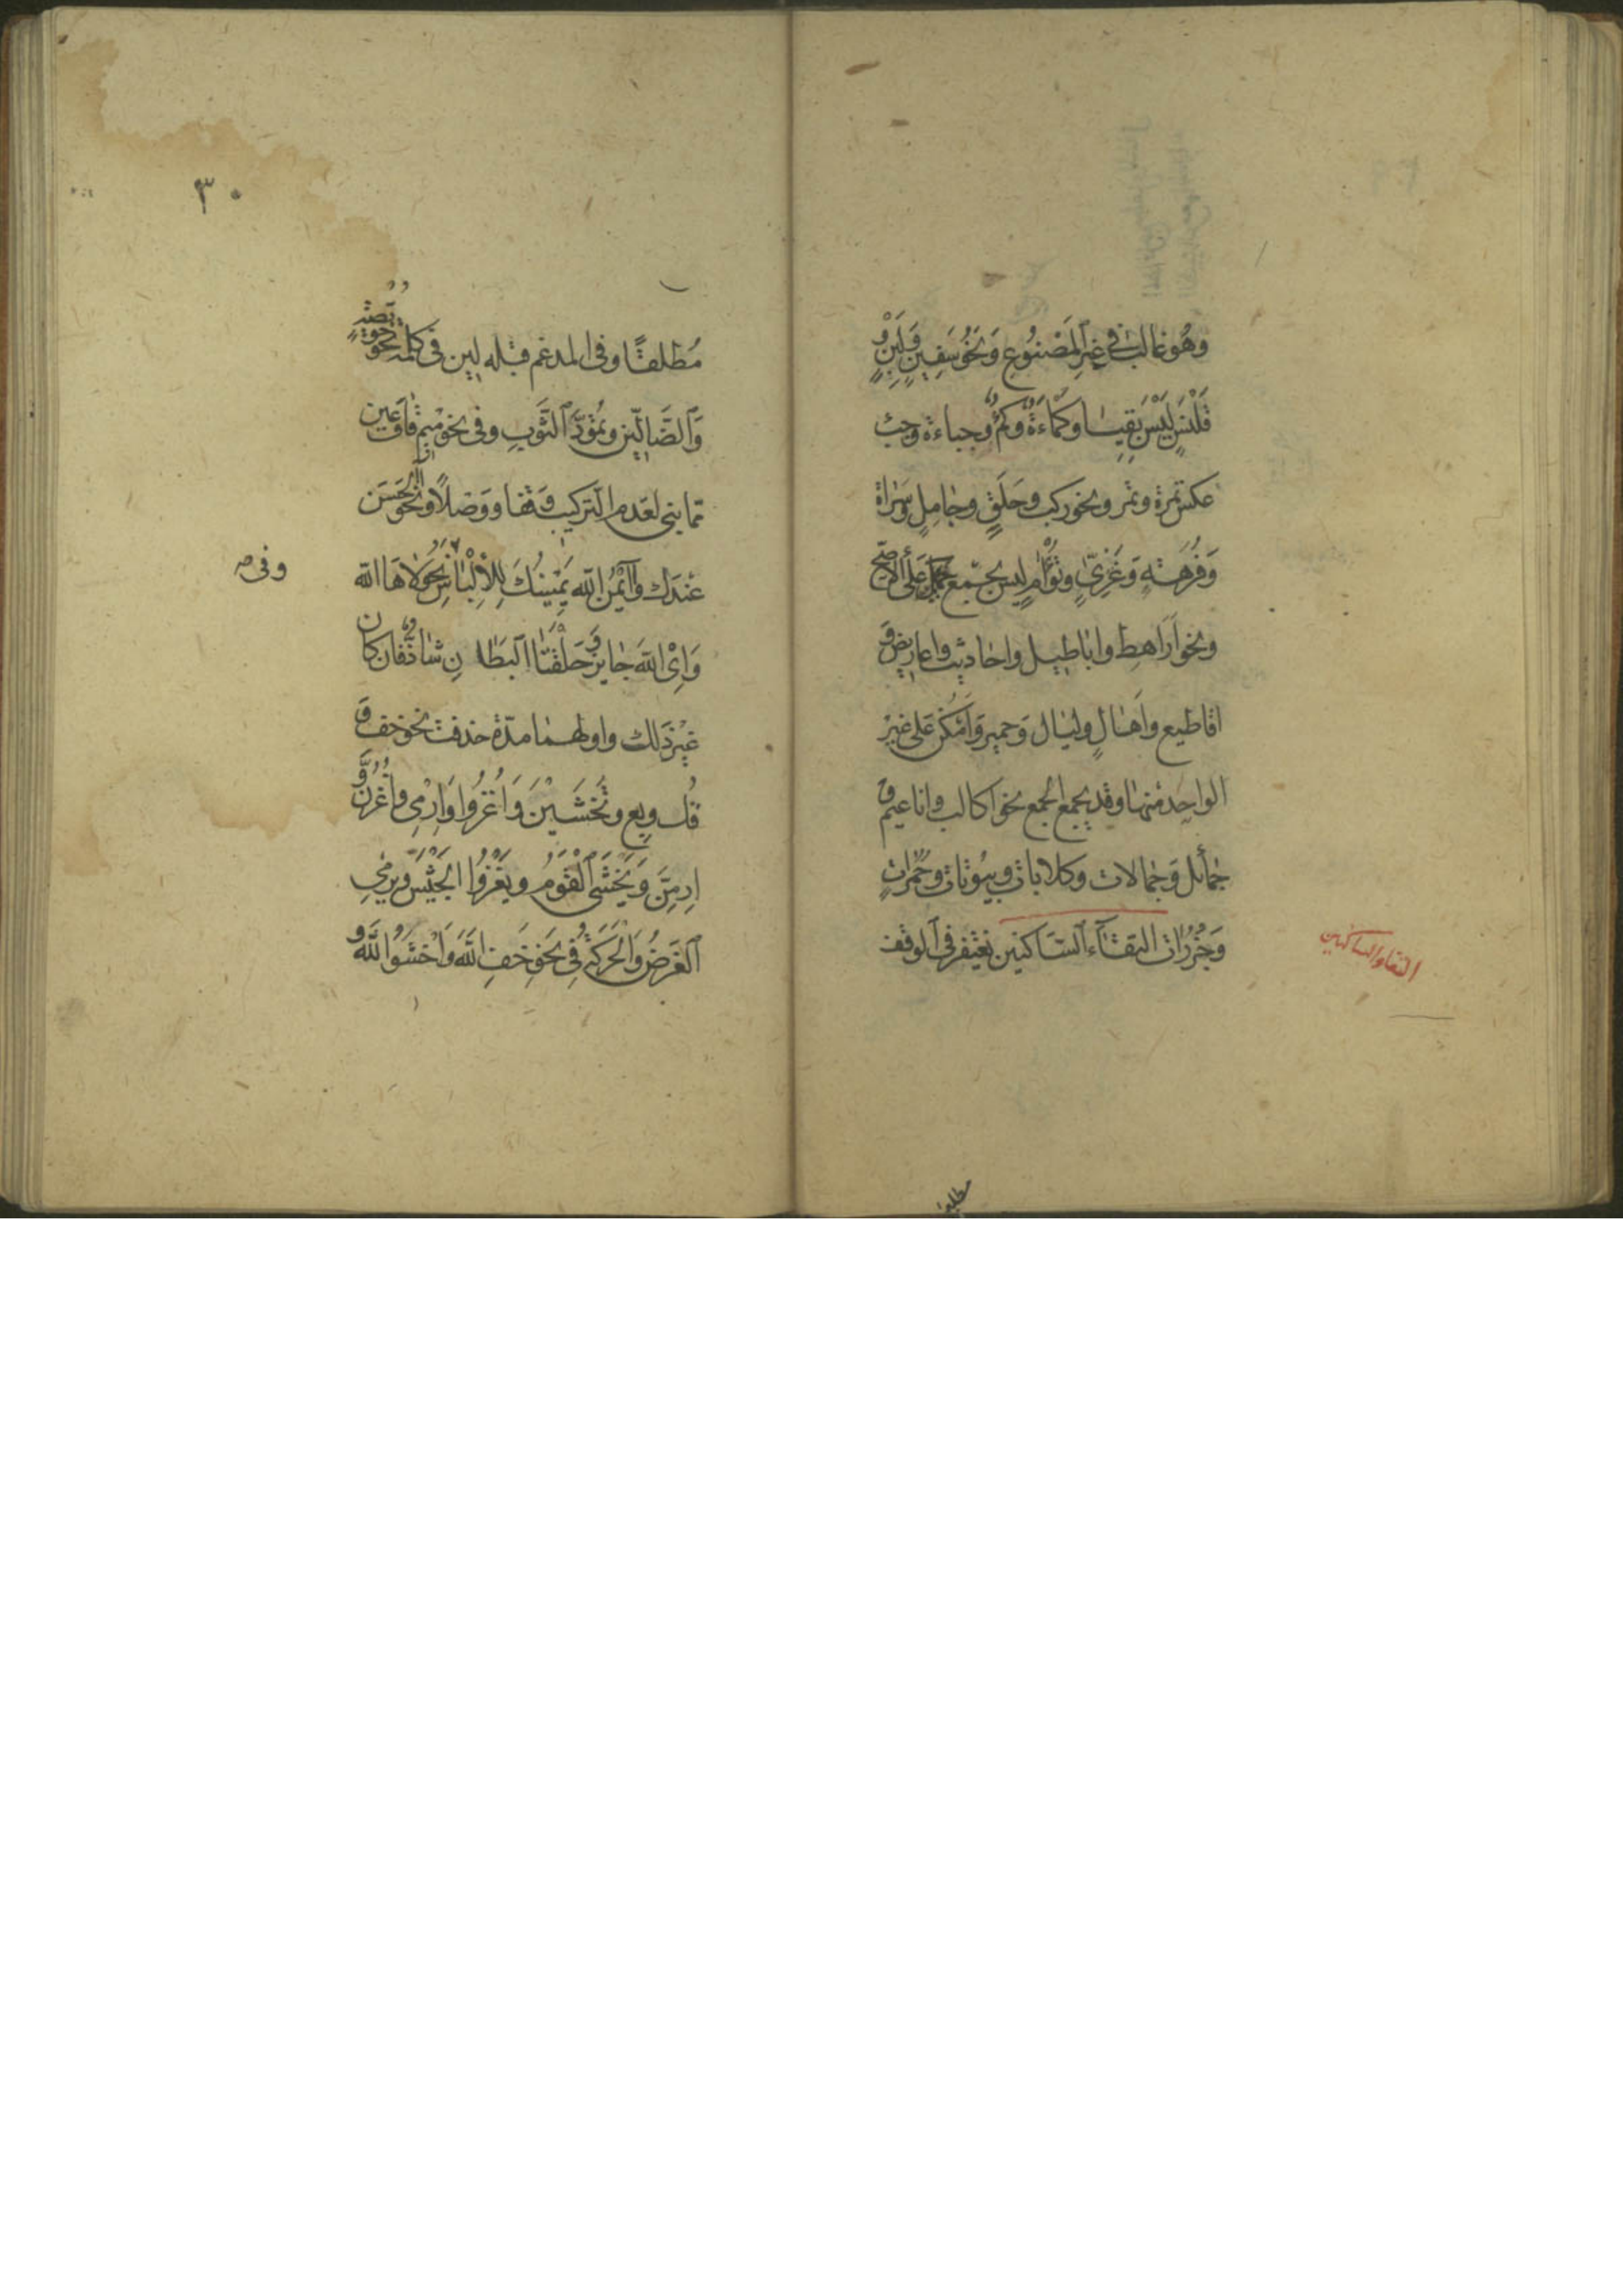 وَهُوَ غالبٌ فى غيرِ المَصْنُوعِ وَنَحْوُ سَفِينٍ وَلَبِنٍ وَ
قَلَنْسٍ لَيْسَ بِقِيَاسٍ وكَمْأَةٌ وكَمْءٌ وجباءة وجبء
عكس تمرة وتمر ونحو ركب وحَلَقٍ وجَامِلٍ وسَرَاة
وَفُرْهَةٍ وَغَزِىٍّ وتُؤَامٍ ليس بجمع على الاصح
ونحو اَرَاهِطَ واباطيل واحاديث واعاريض و
اقاطيع واَهَالٍ وليال وَحمير وَاَمْكُن عَلى غير
الواحد منها وقد يجمع الجمع نحو اكالب واناعيم و
جمائل وَجمالات وكلابات وبيُوتات وحُمُرات
وَجُزُرَات التقآء السَّاكنين يغتفر فى الوقف
التقاء الساكنين
مطلب
٣٠
مُطلقًا وفى المدغم قبله لين فى كلمة نحو خُوَيْصَّةٍ
وَالضَّالِّين وتُمُودَّ الثَّوبِ وفى نحو مِيمْ قَافْ عَينْ
مما بنى لعَدم التركيب وَقفا وَوَصْلًا ونحو اَلْحَسَن
عنْدَكَ وآيْمُنُ اللّٰه يَمِينُكَ لِلاِلْتِبَاسِ وفى نحو لَاهَا اللّٰه
وفى صح
وَاِىْ اللّٰه جايز وَحَلْقَتَا البطَانِ شاذٌّ فان كان
غيرَ ذلك واولهما مدّة حذفت نحو خف و
قُل وبِع وتَخْشَيْنَ وَاغْزُوا وَارْمِى واغْزُنَّ وَ
اِرمِنَّ وَيَخْشَى الْقَوْمُ ويَغْزُوا الجَيْشُ ويرمى
الغَرَضُ وَالْحَرَكَةُ فِى نَحْوِ خَفِ اللّٰهَ وَاخْشَوُا اللّٰهَ و